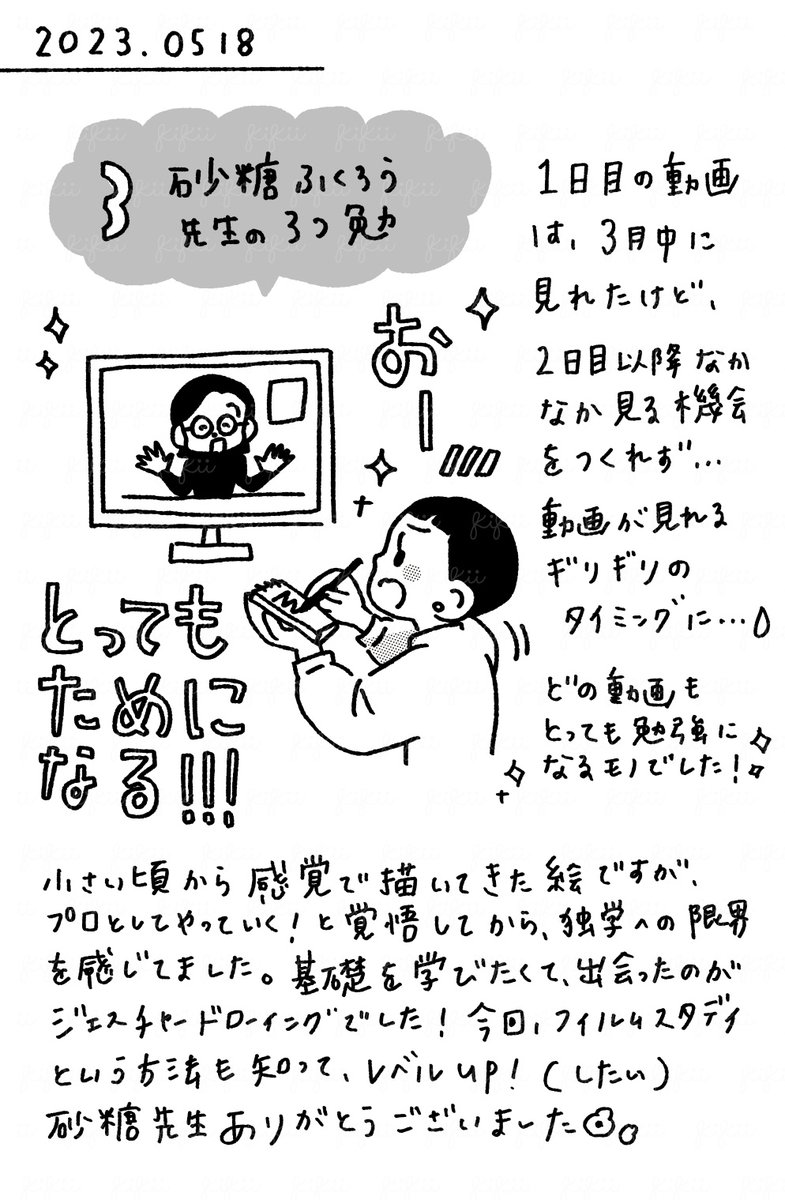 2023.0518
砂糖ふくろう
先生の3つ勉
1日目の動画
は、3月中に
見れたけど、
2日目以降なか
なか見る機会
をつくれず…
動画が見れる
ギリギリの
タイミングに…
どの動画も
とっても勉強に
なるモノでした!
おー
とっても
ために
なる!!!
小さい頃から感覚で描いてきた絵ですが、
プロとしてやっていく!と覚悟してから、独学への限界
を感じてました。基礎を学びたくて、出会ったのが
ジェスチャードローイングでした!今回、フィルムスタディ
という方法も知って、レベルup!(したい)
砂糖先生ありがとうございました